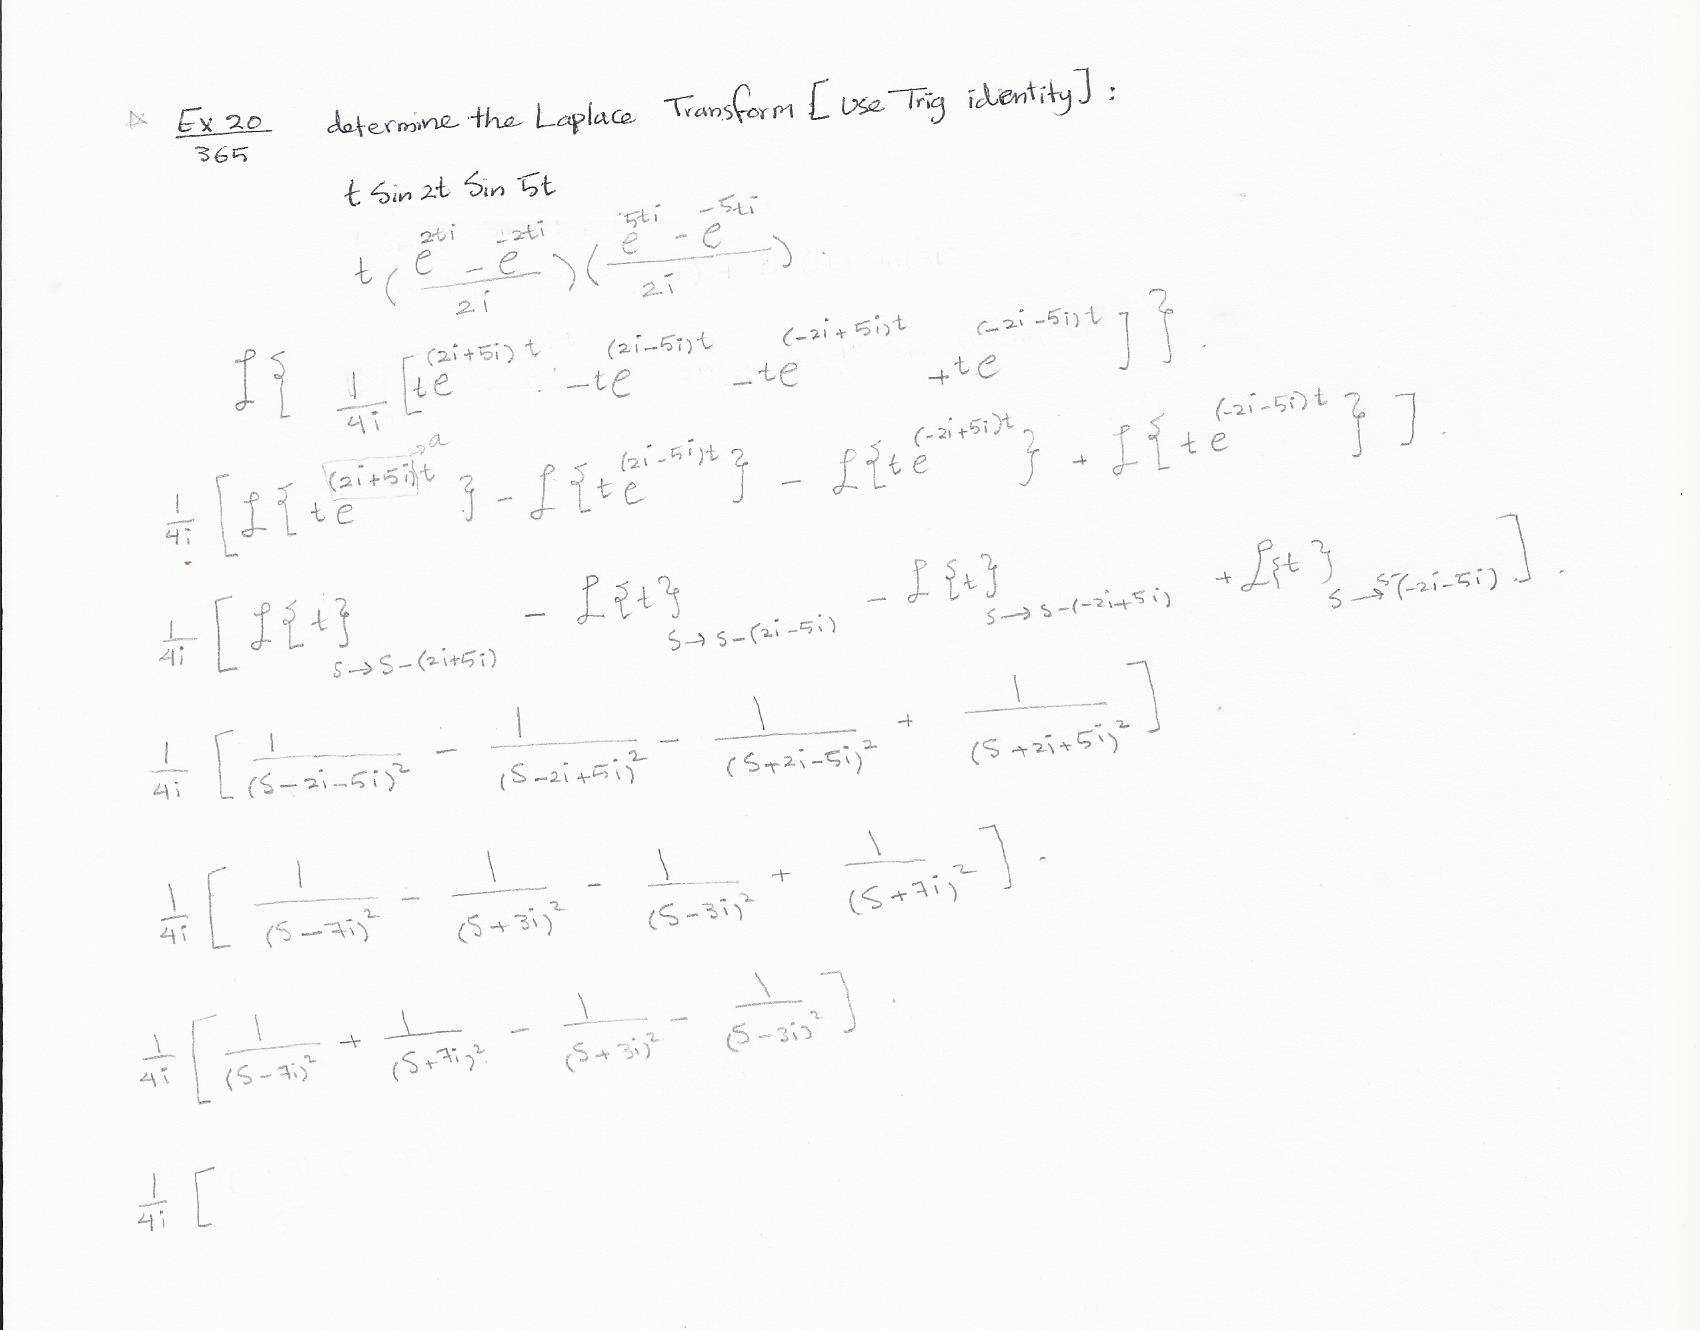 Ex 20 determine the Laplace Transform [Use Trig identity]:
365
t Sin 2t Sin 5t
t ( (e^{2ti} - e^{-2ti}) / 2i ) ( (e^{5ti} - e^{-5ti}) / 2i ) .
ℒ{ 1/4i [ te^{(2i+5i)t} - te^{(2i-5i)t} - te^{(-2i+5i)t} + te^{(-2i-5i)t} ] } .
1/4i [ ℒ{ te^{(2i+5i)t} } - ℒ{ te^{(2i-5i)t} } - ℒ{ te^{(-2i+5i)t} } + ℒ{ te^{(-2i-5i)t} } ] . → a
1/4i [ ℒ{t}_{s→s-(2i+5i)} - ℒ{t}_{s→s-(2i-5i)} - ℒ{t}_{s→s-(-2i+5i)} + ℒ{t}_{s→s-(-2i-5i)} ] .
1/4i [ 1/(s-2i-5i)² - 1/(s-2i+5i)² - 1/(s+2i-5i)² + 1/(s+2i+5i)² ] .
1/4i [ 1/(s-7i)² - 1/(s+3i)² - 1/(s-3i)² + 1/(s+7i)² ] .
1/4i [ 1/(s-7i)² + 1/(s+7i)² - 1/(s+3i)² - 1/(s-3i)² ] .
1/4i [